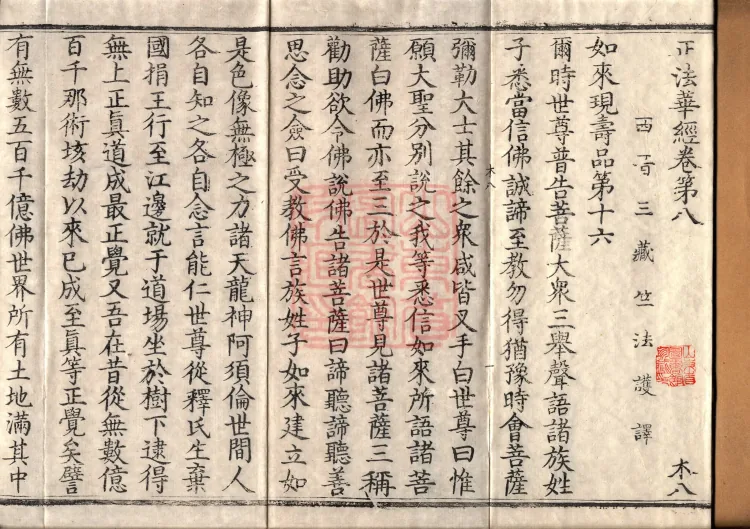 正法華經卷第八
木八
西晉三藏竺法護譯
如來現壽品第十六
爾時世尊普告菩薩大衆三舉聲語諸族姓
子悉當信佛誠諦至教勿得猶豫時會菩薩
木八
一
彌勒大士其餘之衆咸皆叉手白世尊曰惟
願大聖分別說之我等悉信如來所語諸菩
薩白佛而亦至三於是世尊見諸菩薩三稱
勸助欲令佛說佛告諸菩薩曰諦聽諦聽善
思念之僉曰受教佛言族姓子如來建立如
是色像無極之力諸天龍神阿須倫世間人
各自知之各自念言能仁世尊從釋氏生棄
國捐王行至江邊就于道場坐於樹下逮得
無上正眞道成最正覺又吾在昔從無數億
百千那術垓劫以來已成至眞等正覺矣譬
有無數五百千億佛世界所有土地滿其中